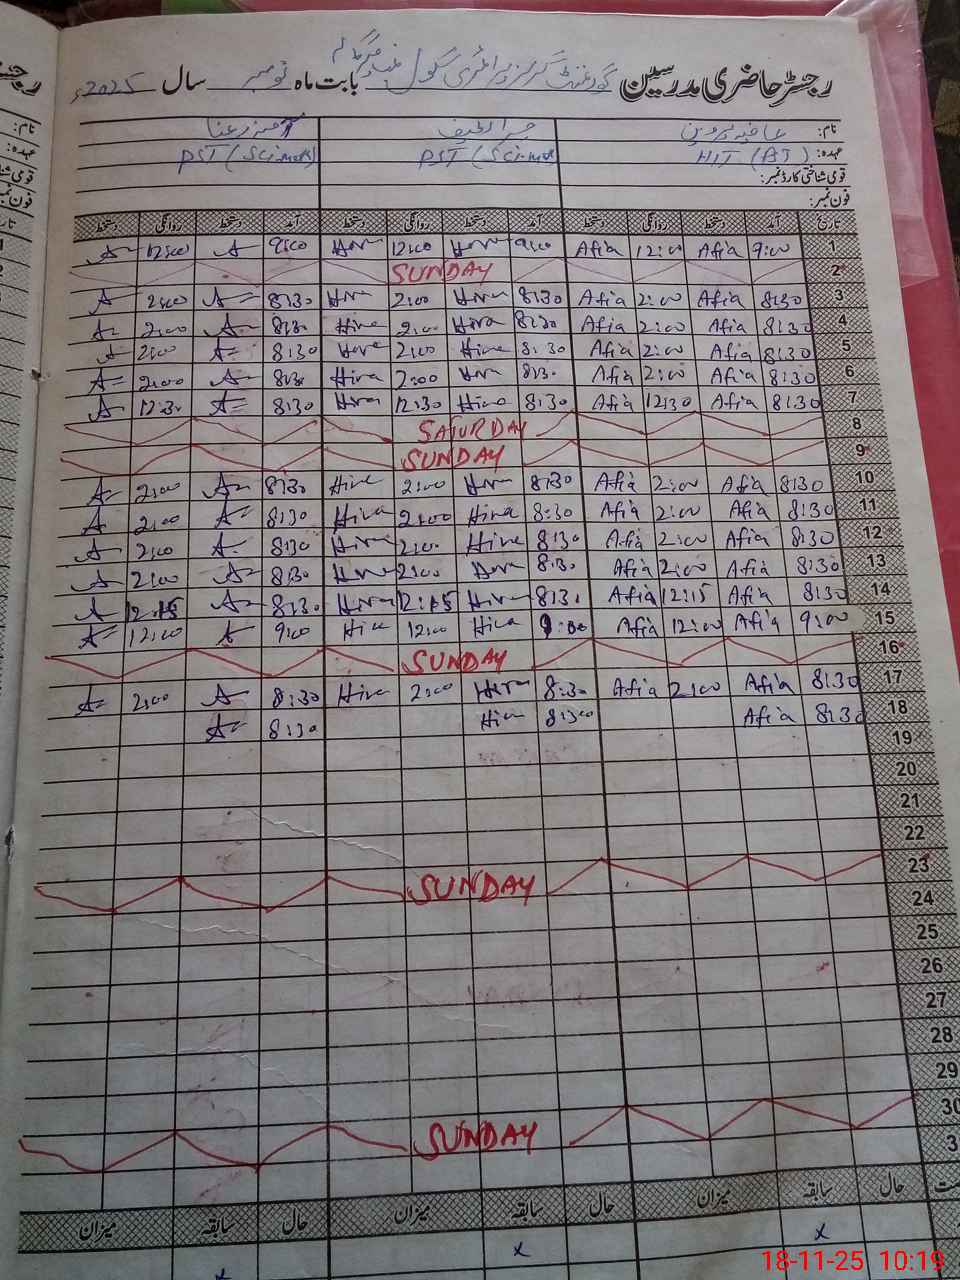 رجسٹر حاضری مدرسین گورنمنٹ گرلز پرائمری سکول بابت ماہ نومبر سال 2025ء
نام: عافیہ پروین حرا لطیف
عہدہ: PST (Sci-math) PST (Sci-math)
قومی شناختی کارڈ نمبر:
فون نمبر:
تاریخ آمد دستخط روانگی دستخط آمد دستخط روانگی دستخط آمد دستخط روانگی دستخط
1 9:00 Afia 12:00 Afia 9:00 Hira 12:00 Hira 9:00 A 12:00 A
2 SUNDAY
3 8:30 Afia 2:00 Afia 8:30 Hira 2:00 Hira 8:30 A 2:00 A
4 8:30 Afia 2:00 Afia 8:30 Hira 2:00 Hira 8:30 A 2:00 A
5 8:30 Afia 2:00 Afia 8:30 Hira 2:00 Hira 8:30 A 2:00 A
6 8:30 Afia 2:00 Afia 8:30 Hira 2:00 Hira 8:30 A 2:00 A
7 8:30 Afia 12:30 Afia 8:30 Hira 12:30 Hira 8:30 A 12:30 A
8 SATURDAY
9 SUNDAY
10 8:30 Afia 2:00 Afia 8:30 Hira 2:00 Hira 8:30 A 2:00 A
11 8:30 Afia 2:00 Afia 8:30 Hira 2:00 Hira 8:30 A 2:00 A
12 8:30 Afia 2:00 Afia 8:30 Hira 2:00 Hira 8:30 A 2:00 A
13 8:30 Afia 2:00 Afia 8:30 Hira 2:00 Hira 8:30 A 2:00 A
14 8:30 Afia 12:15 Afia 8:30 Hira 12:15 Hira 8:30 A 12:15 A
15 9:00 Afia 12:00 Afia 9:00 Hira 12:00 Hira 9:00 A 12:00 A
16 SUNDAY
17 8:30 Afia 2:00 Afia 8:30 Hira 2:00 Hira 8:30 A 2:00 A
18 8:30 Afia 8:30 Hira 8:30 A
19
20
21
22
23 SUNDAY
24
25
26
27
28
29
30 SUNDAY
3
حال سابقہ میزان حال سابقہ میزان حال سابقہ میزان
x x x
18-11-25 10:19